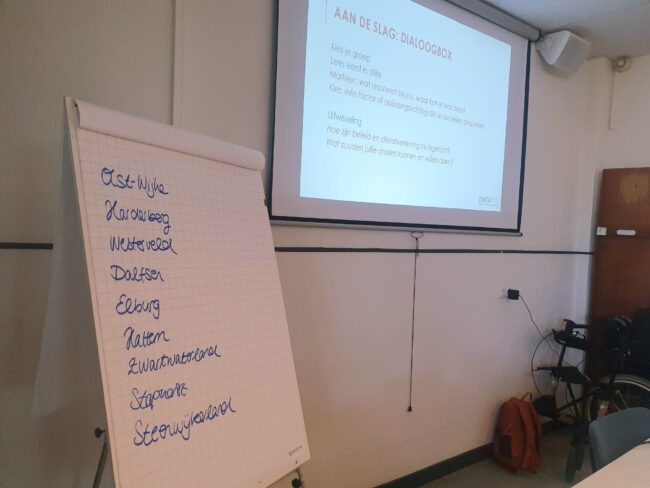 Olst-Wijhe
Hardenberg
Westerveld
Dalfsen
Elburg
Hattem
Zwartwaterland
Staphorst
Steenwijkerland
AAN DE SLAG: DIALOOGBOX
Kies je groep
Lees eerst in stilte
Markeer: wat resoneert bij jou, waar kun je wat mee?
Kies: één factor of oplossingsrichting die je zou willen bespreken
Uitwisseling
Hoe zijn beleid en dienstverlening nu ingericht?
Wat zouden jullie anders kunnen en willen doen?